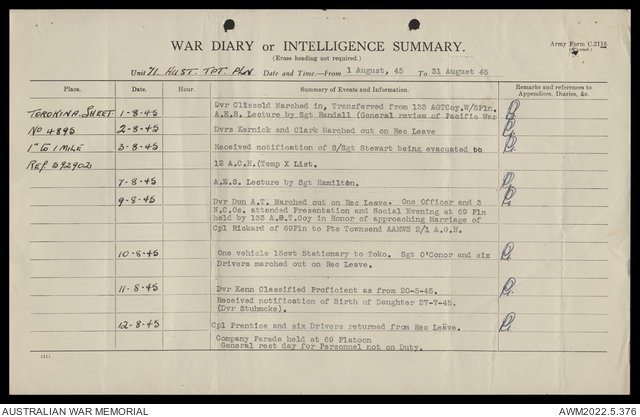 WAR DIARY or INTELLIGENCE SUMMARY.
(Erase heading not required.)
Army Form C.2118
Unit 71 AUST. TPT. PLN Date and Time.—From 1 August, 45 To 31 August 45
Place. Date. Hour. Summary of Events and Information. Remarks and references to Appendices, Diaries, &c.
TOROKINA SHEET 1-8-45 Dvr Clissold Marched in, Transferred from 133 AGTCoy.W/SPln.
A.E.S. Lecture by Sgt Randell (General review of Pacific War
No 4895 2-8-45 Dvrs Kernick and Clark Marched out on Rec Leave
1" to 1 MILE 3-8-45 Received notification of S/Sgt Stewart being evacuated to
REF 592902 12 A.C.H.(Temp X List.
7-8-45 A.E.S. Lecture by Sgt Hamilton.
9-8-45 Dvr Dun A.T. Marched out on Rec Leave. One Officer and 3
N.C.Os, attended Presentation and Social Evening at 69 Pln
held by 133 A.G.T.Coy in Honor of approaching Marriage of
Cpl Rickard of 69Pln to Pte Townsend AANWS 2/1 A.G.H.
10-8-45 One vehicle 15cwt Stationary to Toko. Sgt O'Conor and six
Drivers marched out on Rec Leave.
11-8-45 Dvr Kenn Classified Proficient as from 20-5-45.
Received notification of Birth of Daughter 27-7-45.
(Dvr Stuhmcke).
12-8-45 Cpl Prentice and six Drivers returned from Rec Leave.
Company Parade held at 69 Platoon
General rest day for Personnel not on Duty.
AUSTRALIAN WAR MEMORIAL AWM2022.5.376